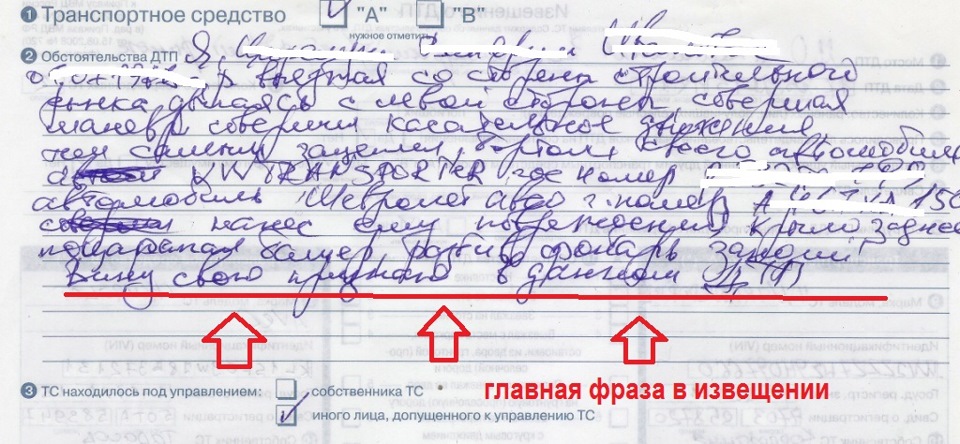 1 Транспортное средство "А" "В"
нужное отметить
2 Обстоятельства ДТП Я,
выезжая со стороны строительного
рынка двигаясь с левой стороны совершая
маневр совершил касательное движение,
тем самым зацепил бортом своего автомобиля
VW TRANSPORTER гос номер
автомобиль Шевроле Авео г. номер 150
нанес ему повреждения крыло заднее
поцарапал бампер разбив фонарь задний
Вину свою признаю в данном ДТП
главная фраза в извещении
3 ТС находилось под управлением: собственника ТС
иного лица, допущенного к управлению ТС